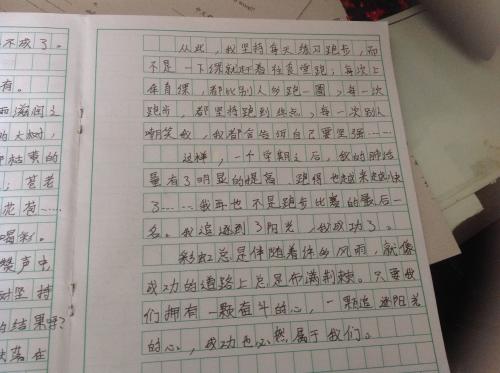 不成了。
有。
雨滋润之
的大树，
那枯黄的
，苍老
花苞……
喝彩。
赞声中
对坚持
的结果呢？
大袭在
从此，我坚持每天练习跑步，而
不是一下课就盯着往食堂跑；每次上
体育课，都比别人多跑一圈；每一次
跑步，都坚持跑到终点；每一次别人
嘲笑我，我都会告诉自己要坚强……
这样，一个学期之后，我的肺活
量有了明显的提高，跑得也越来越快
了……我再也不是跑步比赛的最后一
名。我追逐到了阳光，我成功了。
彩虹总是伴随着伴的风雨，就像
成功的道路上总是布满荆棘。只要我
们拥有一颗奋斗的心，一颗追逐阳光
的心，成功也必然属于我们。